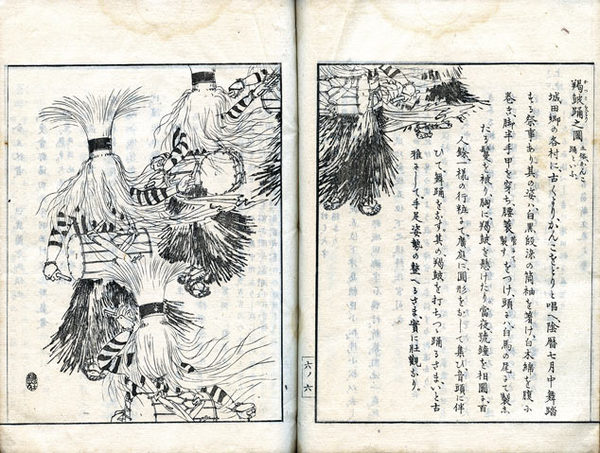 羯皷踊之圖 土俗かんこ
踊といふ
城田郷の各村に古くよりかんこをどりと唱へ陰暦七月中舞踏
する祭事あり其の姿ハ白黒段染の筒袖を着け白木綿を腹に
巻き脚半手甲を穿ち腰簑をつけ頭にハ白馬の尾にて製し
たる鬘を被り胸に羯皷を懸けたり當夜號鐘を相圖に百
人餘一様の行粧にて廣庭に圓形をなして集ひ音頭に伴
ひて舞踊をなす其の羯皷を打ちつゝ踊るさまいと古
雅にして手足姿勢の整へるさま實に壯觀なり。
六ノ六